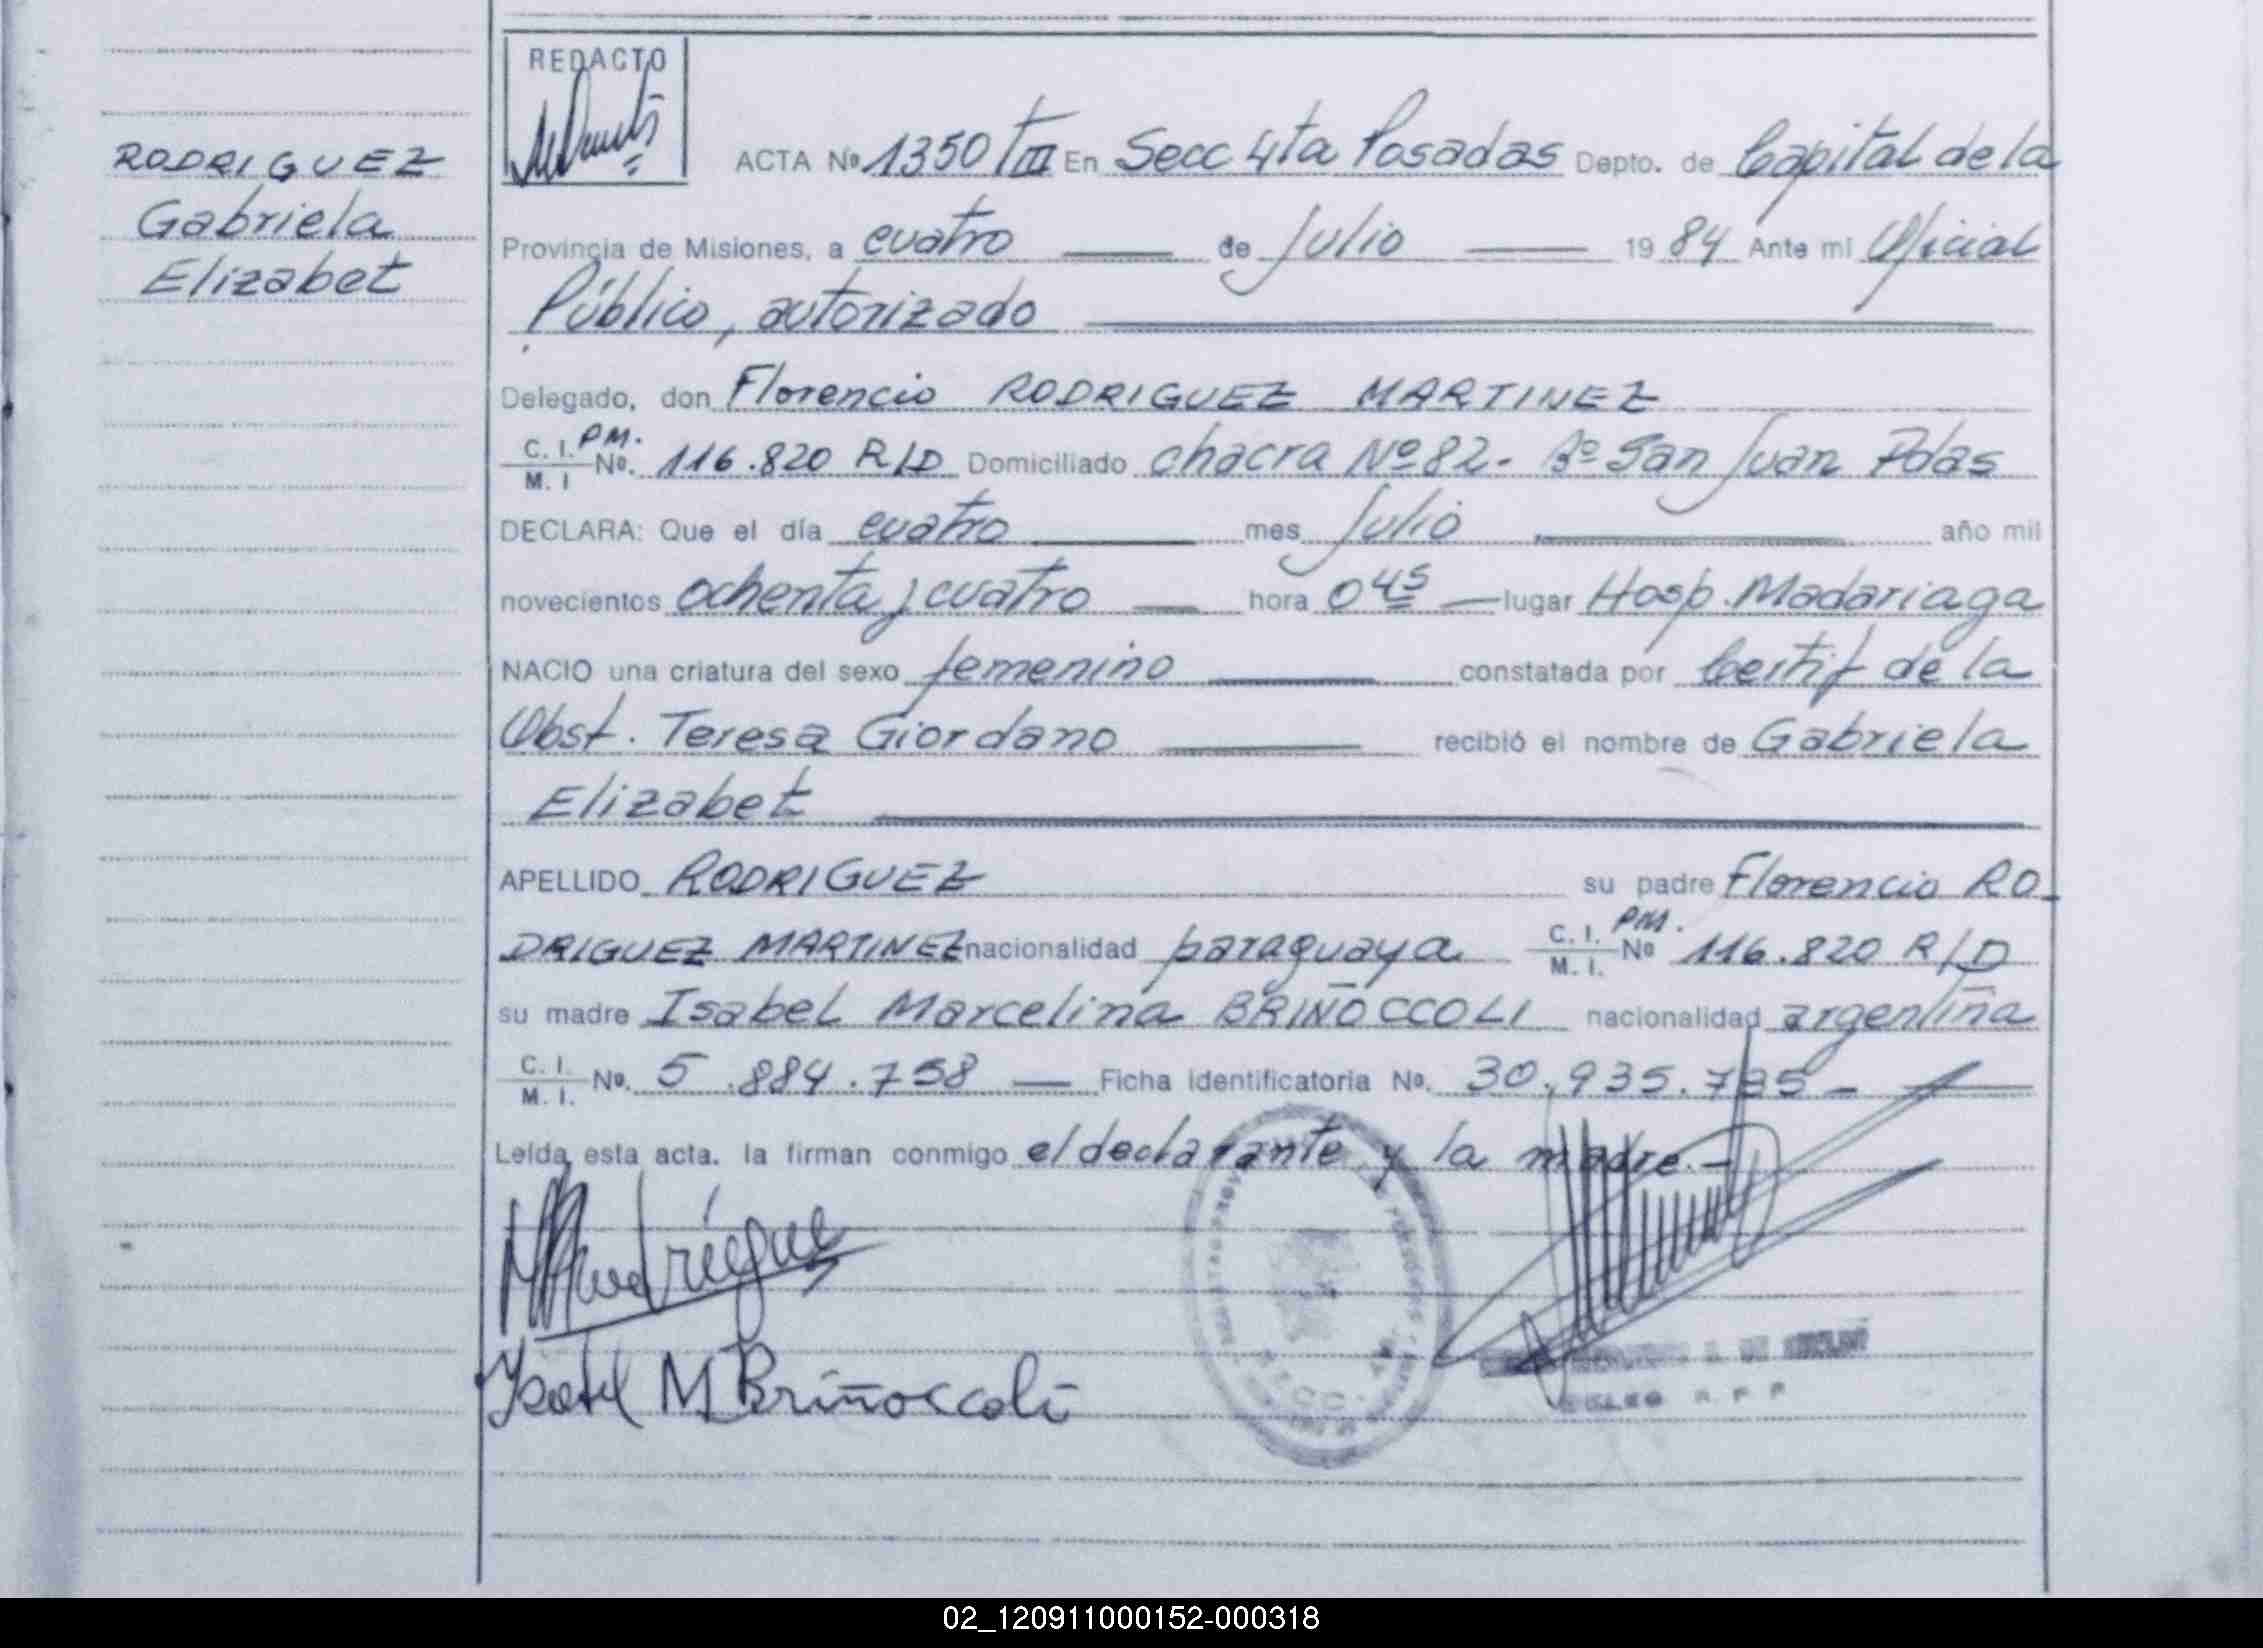 RODRIGUEZ
Gabriela
Elizabet
REDACTO
ACTA Nº 1350 TIII En Secc 4ta Posadas Depto. de Capital de la
Provincia de Misiones, a cuatro de Julio 1984 Ante mi Oficial
Público, autorizado
Delegado, don Florencio RODRIGUEZ MARTINEZ
C. I. PM.
M. I Nº. 116.820 R/D Domiciliado chacra Nº 82- Bº San Juan Pdas
DECLARA: Que el día cuatro mes Julio año mil
novecientos ochenta y cuatro hora 0 45 lugar Hosp. Madariaga
NACIO una criatura del sexo femenino constatada por Certif de la
Obst. Teresa Giordano recibió el nombre de Gabriela
Elizabet
APELLIDO RODRIGUEZ su padre Florencio RO-
DRIGUEZ MARTINEZ nacionalidad paraguaya C. I. PM. M. I. Nº 116.820 R/D
su madre Isabel Marcelina BRIÑOCCOLI nacionalidad argentina
C. I. M. I. Nº. 5.884.758 Ficha identificatoria Nº. 30.935.735-
Leída esta acta. la firman conmigo el declarante y la madre.-
Isabel M Briñoccoli
02_120911000152-000318